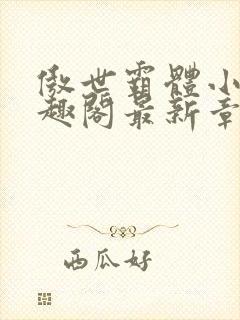 傲世霸體小
趣閣最新章
西瓜好